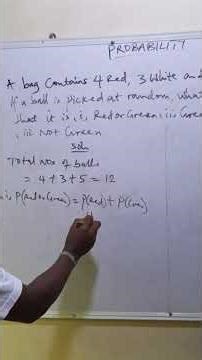 PROBABILITY
A bag contains 4 Red, 3 White an
If a ball is picked at random, what
that it is, i, Red or Green; ii Green
iii Not Green
Soln
Total Nos of balls
= 4+3+5 = 12
P(Red or Green) = P(Red) + P(Green)